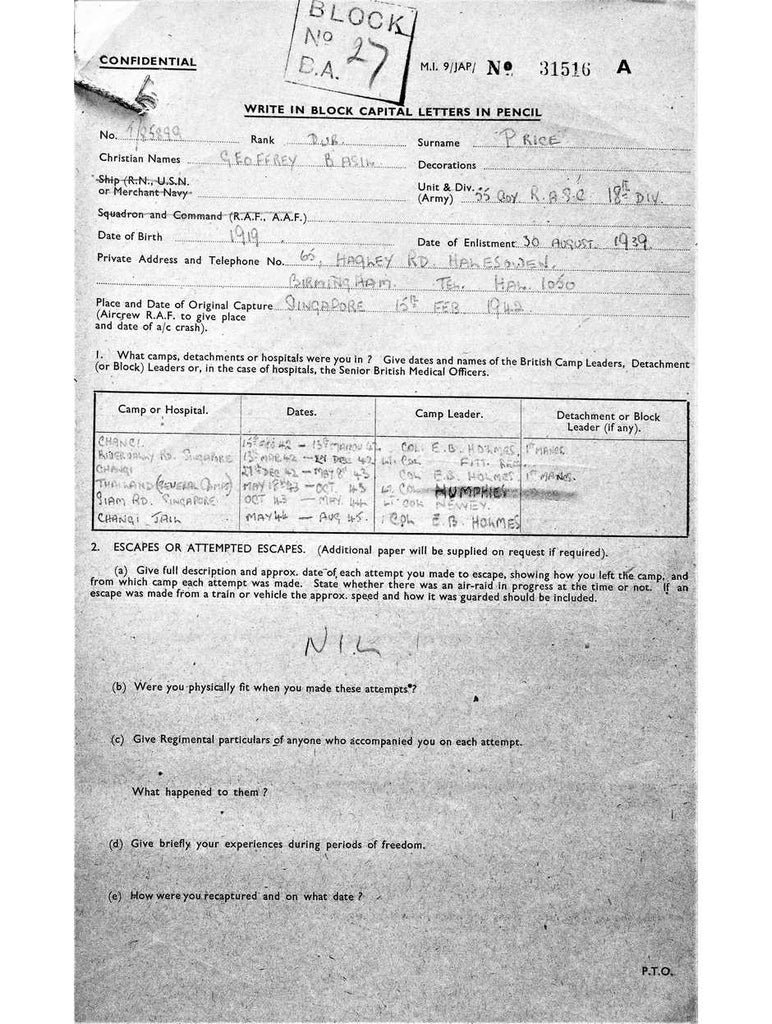 BLOCK
No 27
B.A.
CONFIDENTIAL
M.I. 9/JAP/ No. 31516 A
WRITE IN BLOCK CAPITAL LETTERS IN PENCIL
No. T/85899 Rank DVR. Surname PRICE
Christian Names GEOFFREY BASIL Decorations
Ship (R.N., U.S.N.
or Merchant Navy
Unit & Div. 55 COY. R.A.S.C. 18TH DIV.
(Army)
Squadron and Command (R.A.F., A.A.F.)
Date of Birth 1919. Date of Enlistment 30 AUGUST. 1939.
Private Address and Telephone No. 65, HAGLEY RD. HALESOWEN.
BIRMINGHAM. TEL. HAL. 1050
Place and Date of Original Capture SINGAPORE 15TH FEB 1942.
(Aircrew R.A.F. to give place
and date of a/c crash).
1. What camps, detachments or hospitals were you in ? Give dates and names of the British Camp Leaders, Detachment
(or Block) Leaders or, in the case of hospitals, the Senior British Medical Officers.
Camp or Hospital. Dates. Camp Leader. Detachment or Block
Leader (if any).
CHANGI. 15TH FEB 42 – 13TH MARCH 42. COL. E.B. HOLMES. 1ST MANCS.
RD. SINGAPORE 13TH MAR 42 – DEC 42 LT. COL.
CHANGI 27TH DEC 42 – MAY 8TH 43 COL E.B. HOLMES 1ST MANCS.
THAILAND (GENERAL CAMPS) MAY 43 – OCT 43 LT. COL HUMPHIES
SIAM RD. SINGAPORE OCT 43 – MAY 44 LT COL NEWEY.
CHANGI JAIL MAY 44 – AUG 45. COL E.B. HOLMES
2. ESCAPES OR ATTEMPTED ESCAPES. (Additional paper will be supplied on request if required).
(a) Give full description and approx. date of each attempt you made to escape, showing how you left the camp, and
from which camp each attempt was made. State whether there was an air-raid in progress at the time or not. If an
escape was made from a train or vehicle the approx. speed and how it was guarded should be included.
NIL
(b) Were you physically fit when you made these attempts ?
(c) Give Regimental particulars of anyone who accompanied you on each attempt.
What happened to them ?
(d) Give briefly your experiences during periods of freedom.
(e) How were you recaptured and on what date ?
P.T.O.